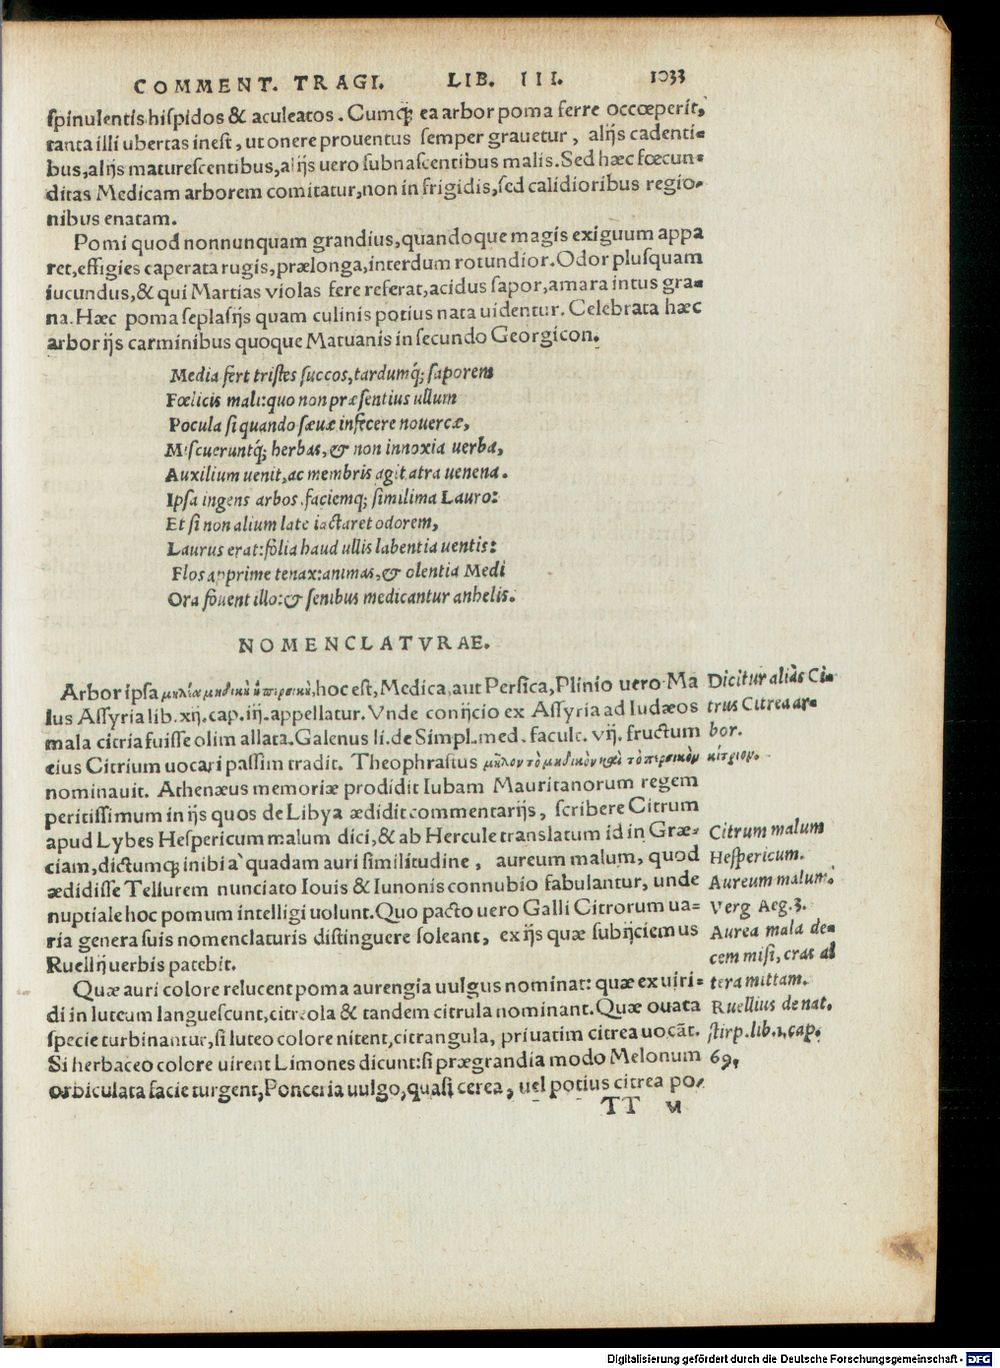 COMMENT. TRAGI. LIB. III. 1033
spinulentis hispidos & aculeatos. Cumq; ea arbor poma ferre occœperit,
tanta illi ubertas inest, ut onere prouentus semper grauetur, alijs cadenti-
bus, alijs maturescentibus, alijs uero subnascentibus malis. Sed hæc fœcun-
ditas Medicam arborem comitatur, non in frigidis, sed calidioribus regio-
nibus enatam.
Pomi quod nonnunquam grandius, quandoque magis exiguum appa
ret, effigies caperata rugis, prælonga, interdum rotundior. Odor plusquam
iucundus, & qui Martias violas fere referat, acidus sapor, amara intus gra-
na. Hæc poma seplasijs quam culinis potius nata uidentur. Celebrata hæc
arbor ijs carminibus quoque Matuanis in secundo Georgicon.
Media fert tristes succos, tardumq́; saporem
Fœlicis mali: quo non præsentius ullum
Pocula si quando sæuæ infecere nouercæ,
Miscueruntq́; herbas, & non innoxia uerba,
Auxilium uenit, ac membris agit atra uenena.
Ipsa ingens arbos, faciemq; similima Lauro:
Et si non alium late iactaret odorem,
Laurus erat: folia haud ullis labentia uentis:
Flos apprime tenax: animas, & olentia Medi
Ora fouent illo: & senibus medicantur anhelis.
NOMENCLATVRAE.
Arbor ipsa μηλία μηδικὴ ἢ περσικὴ, hoc est, Medica aut Persica, Plinio uero Ma
lus Assyria lib. xij. cap. iij. appellatur. Vnde conijcio ex Assyria ad Iudæos
mala citria fuisse olim allata. Galenus li. de Simpl. med. facult. vij. fructum
eius Citrium uocari passim tradit. Theophrastus μῆλον τὸ μηδικὸν καὶ τὸ περσικὸν
nominauit. Athenæus memoriæ prodidit Iubam Mauritanorum regem
peritissimum in ijs quos de Libya ædidit commentarijs, scribere Citrum
apud Lybes Hespericum malum dici, & ab Hercule translatum id in Græ-
ciam, dictumq; inibi à quadam auri similitudine, aureum malum, quod
ædidisse Tellurem nunciato Iouis & Iunonis connubio fabulantur, unde
nuptiale hoc pomum intelligi uolunt. Quo pacto uero Galli Citrorum ua-
ria genera suis nomenclaturis distinguere soleant, ex ijs quæ subijciemus
Ruellij uerbis patebit.
Quæ auri colore relucent poma aurengia uulgus nominat: quæ ex uiri-
di in luteum languescunt, citreola & tandem citrula nominant. Quæ ouata
specie turbinantur, si luteo colore nitent, citrangula, priuatim citrea uocāt.
Si herbaceo colore uirent Limones dicunt: si prægrandia modo Melonum
orbiculata facie turgent, Ponceria uulgo, quasi cerea, uel potius citrea po-
TT vi
Dicitur aliàs Ci-
trus Citrea ar-
bor.
κίτριον.
Citrum malum
Hespericum.
Aureum malum.
Verg Aeg. 3.
Aurea mala de-
cem misi, cras al
tera mittam.
Ruellius de nat.
stirp. lib. 1, cap.
69,
Digitalisierung gefördert durch die Deutsche Forschungsgemeinschaft - DFG